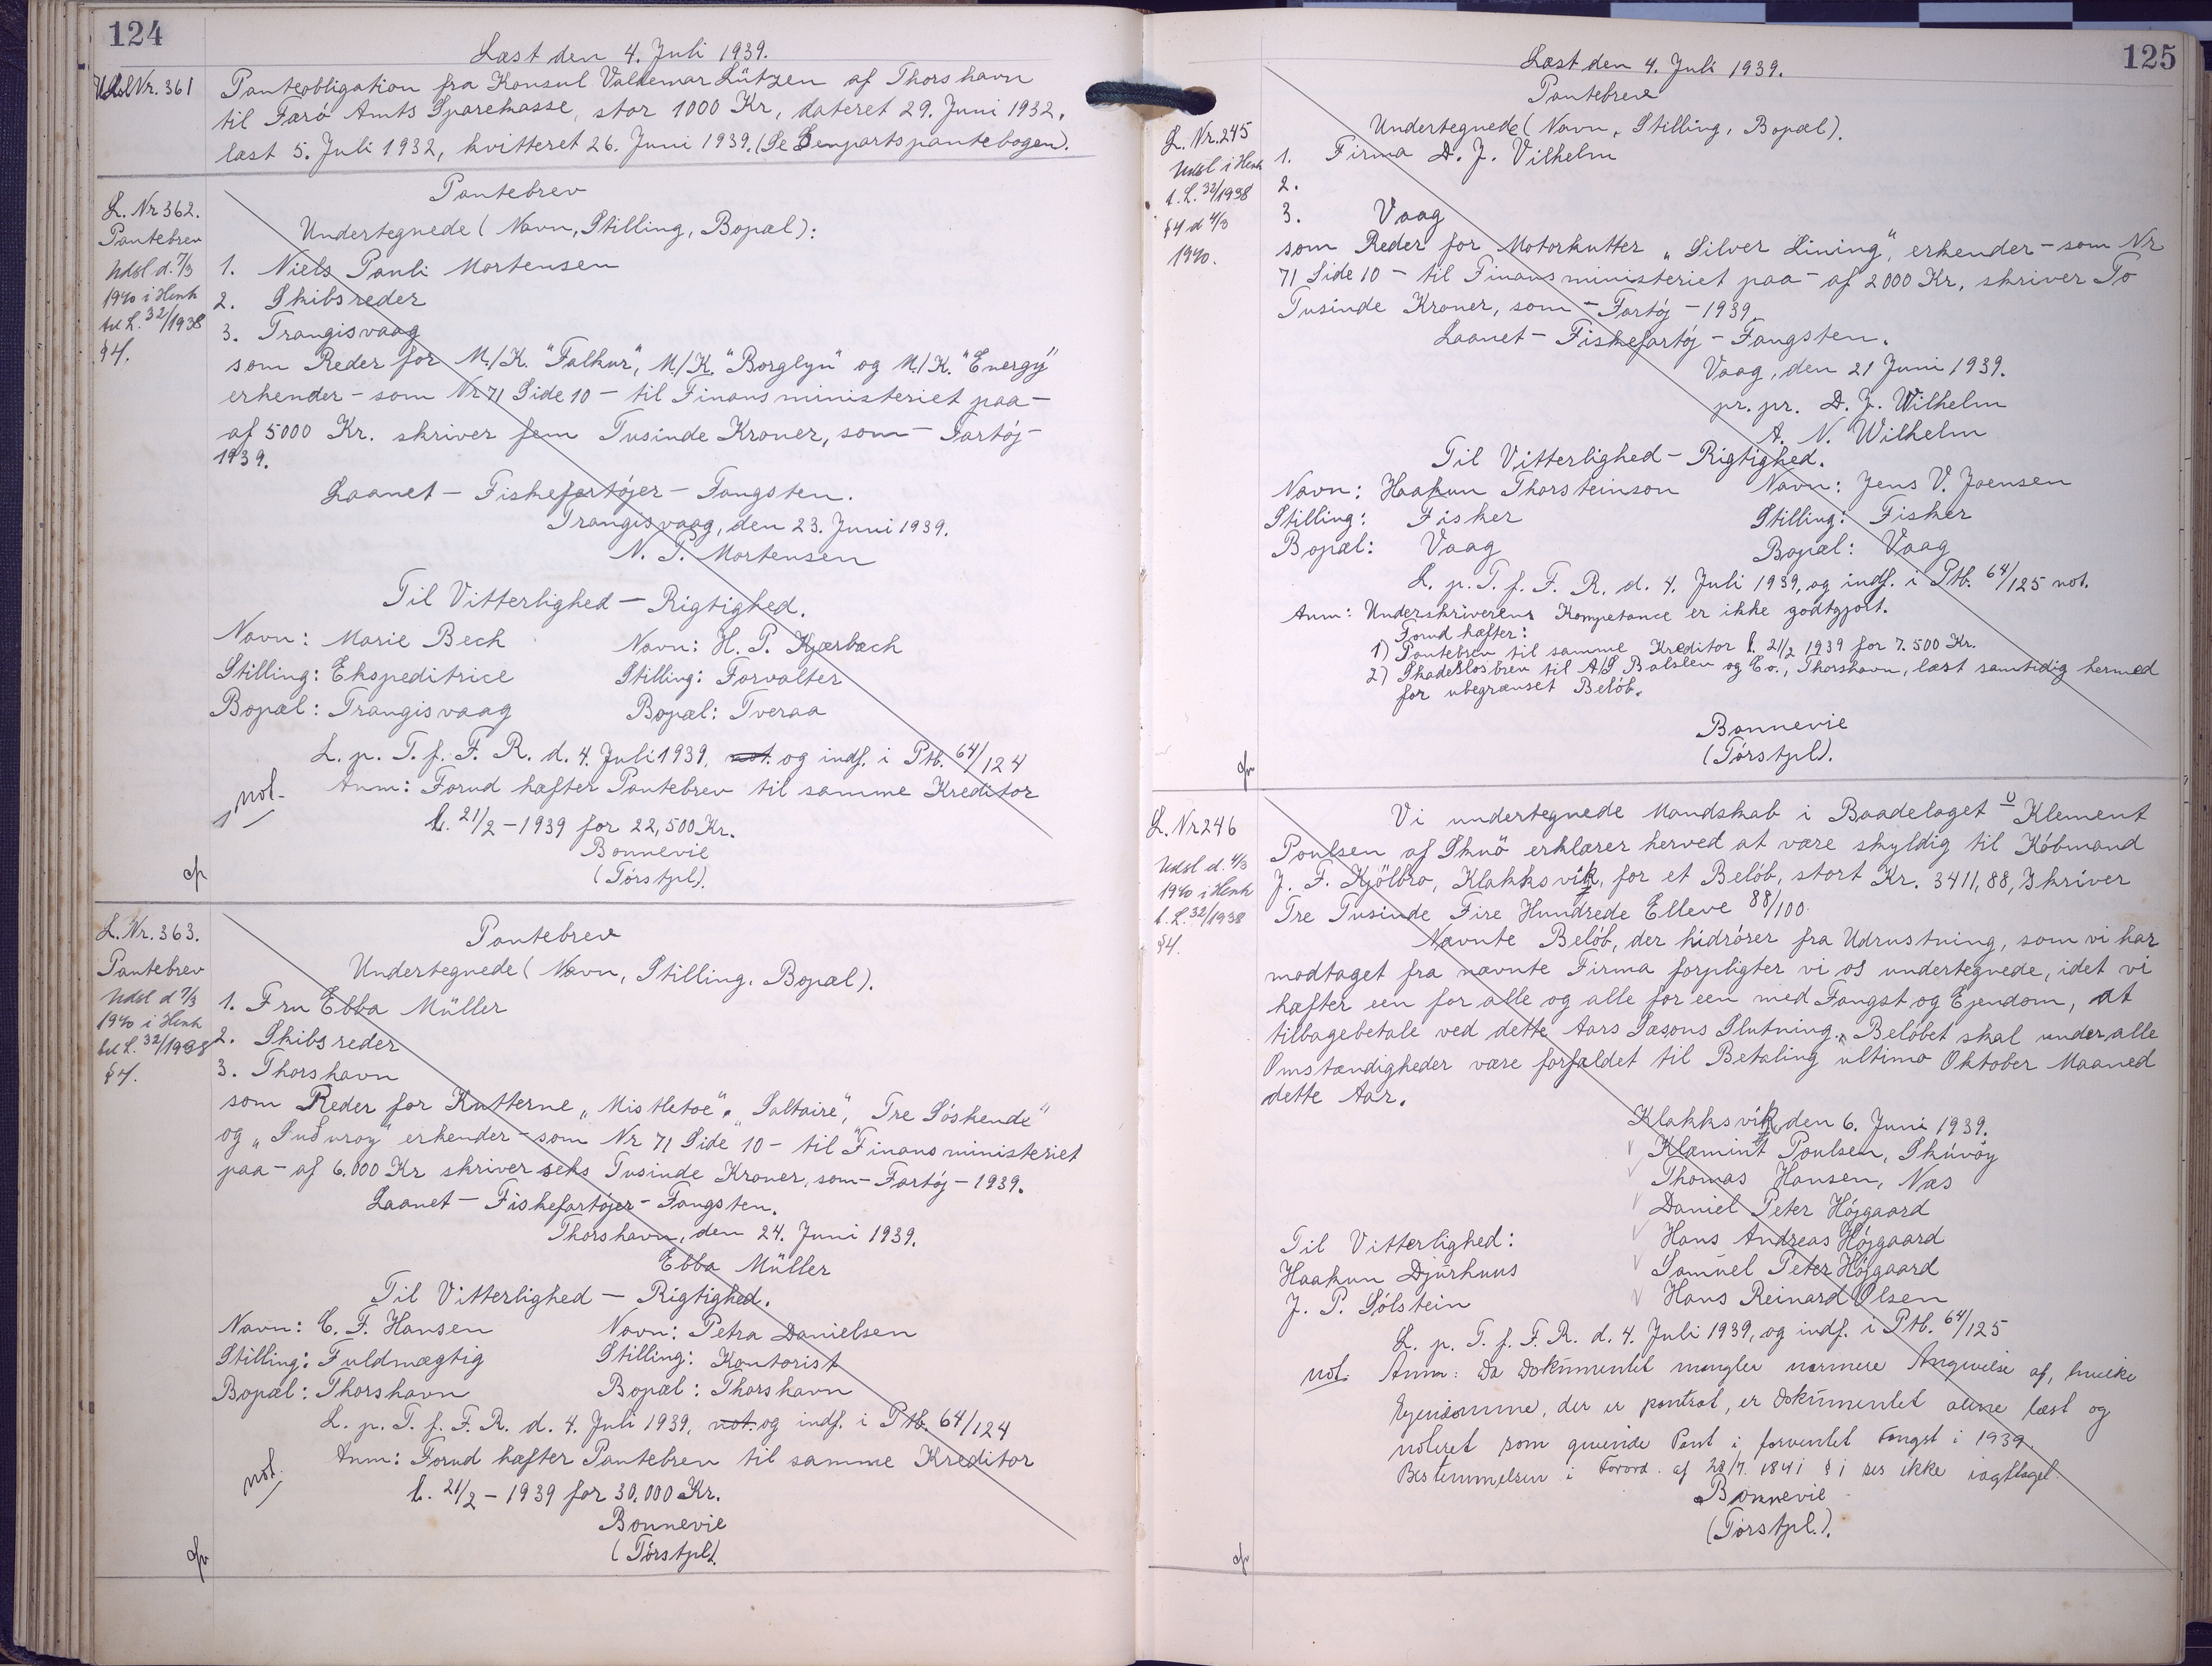 124
Læst den 4. Juli 1939.
Udsl Nr. 361
Panteobligation fra Konsul Valdemar Lützen af Thorshavn
til Færö Amts Sparekasse, stor 1000 Kr, dateret 29. Juni 1932,
læst 5. Juli 1932, kvitteret 26. Juni 1939. (Se Genpartspantebogen).
L. Nr 362.
Pantebrev
Udsl d. 7/3
1940 i Henh
til L. 32/1938
§ 4.
Pantebrev
Undertegnede (Navn, Stilling, Bopæl):
1. Niels Pauli Mortensen
2. Skibsreder
3. Trangisvaag
som Reder for M/K. "Falkur", M/K. "Borglyn" og M/K. "Energy"
erkender - som Nr 71 Side 10 - til Finansministeriet paa -
af 5000 Kr. skriver fem Tusinde Kroner, som - Fartöj -
1939.
Laanet - Fiskefartöjer - Fangsten.
Trangisvaag, den 23. Juni 1939.
N. P. Mortensen
Til Vitterlighed - Rigtighed.
Navn: Marie Bech Navn: H. P. Kjærbæch
Stilling: Ekspeditrice Stilling: Forvalter
Bopæl: Trangisvaag Bopæl: Tveraa
L. p. T. f. F. R. d. 4. Juli 1939, not. og indf. i Ptb. 64/124
not.
Anm: Forud hæfter Pantebrev til samme Kreditor
l. 21/2 - 1939 for 22,500 Kr.
Bonnevie
(Törstpl).
L. Nr. 363.
Pantebrev
Udsl d 7/3
1940 i Henh
til L. 32/1938
§ 4.
Pantebrev
Undertegnede (Navn, Stilling, Bopæl).
1. Fru Ebba Müller
2. Skibsreder
3. Thorshavn
som Reder for Kutterne „Mistletoe", „Saltaire", „Tre Söskende"
og „Suðuroy" erkender - som Nr 71 Side 10 - til Finansministeriet
paa - af 6.000 Kr skriver seks Tusinde Kroner, som - Fartöj - 1939.
Laanet - Fiskefartöjer - Fangsten.
Thorshavn, den 24. Juni 1939.
Ebba Müller
Til Vitterlighed - Rigtighed.
Navn: C. F. Hansen Navn: Petra Danielsen
Stilling: Fuldmægtig Stilling: Kontorist
Bopæl: Thorshavn Bopæl: Thorshavn
L. p. T. f. F. R. d. 4. Juli 1939, not. og indf. i Ptb. 64/124
not.
Anm: Forud hæfter Pantebrev til samme Kreditor
l. 21/2 - 1939 for 30.000 Kr.
Bonnevie
(Törstpl).
125
Læst den 4. Juli 1939.
Pantebrev
L. Nr. 245
Udsl i Henh
t. L. 32/1938
§ 4 d 4/3
1940.
Undertegnede (Navn, Stilling, Bopæl).
1. Firma D. J. Vilhelm
2.
3. Vaag
som Reder for Motorkutter „Silver Lining", erkender - som Nr
71 Side 10 - til Finansministeriet paa - af 2000 Kr, skriver To
Tusinde Kroner, som - Fartöj - 1939.
Laanet - Fiskefartöj - Fangsten.
Vaag, den 21 Juni 1939.
pr. pr. D. J. Wilhelm
A. N. Wilhelm
Til Vitterlighed - Rigtighed.
Navn: Haakun Thorsteinson Navn: Jens V. Joensen
Stilling: Fisker Stilling: Fisker
Bopæl: Vaag Bopæl: Vaag
L. p. T. f. F. R. d. 4. Juli 1939, og indf. i Ptb. 64/125 not.
Anm: Underskriverens Kompetance er ikke godtgjort.
Forud hæfter:
1) Pantebrev til samme Kreditor l. 21/2 1939 for 7.500 Kr.
2) Skadeslösbrev til A/S Balslev og Co., Thorshavn, læst samtidig hermed
for ubegrænset Belöb.
Bonnevie
(Törstpl).
L. Nr 246
Udsl d. 4/3
1940 i Henh
t. L. 32/1938
§ 4.
Vi undertegnede Mandskab i Baadelaget ᵛ Klement
Poulsen af Skuö erklærer herved at være skyldig til Köbmand
J. F. Kjölbro, Klakksvík, for et Belöb, stort Kr. 3411,88, skriver
Tre Tusinde Fire Hundrede Elleve 88/100.
Nævnte Belöb, der hidrörer fra Udrustning, som vi har
modtaget fra nævnte Firma forpligter vi os undertegnede, idet vi
hæfter een for alle og alle for een med Fangst og Ejendom, at
tilbagebetale ved dette Aars Sæsons Slutning. Belöbet skal under alle
Omstændigheder være forfaldet til Betaling ultimo Oktober Maaned
dette Aar.
Klakksvík, den 6. Juni 1939.
Klæmint Poulsen, Skúvöy
Thomas Hansen, Næs
Daniel Peter Höjgaard
Til Vitterlighed: Hans Andreas Höjgaard
Haakun Djurhuus Samuel Peter Höjgaard
J. P. Sólstein Hans Reinard Olsen
L. p. T. f. F. R. d. 4. Juli 1939, og indf. i Ptb. 64/125
not. Anm: Da Dokumentet mangler nærmere Angivelse af, hvilke
Ejendomme, der er pantsat, er Dokumentet alene læst og
noteret som givende Pant i forventet Fangst i 1939.
Bestemmelsen i Forord. af 28/7. 1841 § 1 ses ikke iagttaget.
Bonnevie
(Törstpl.).